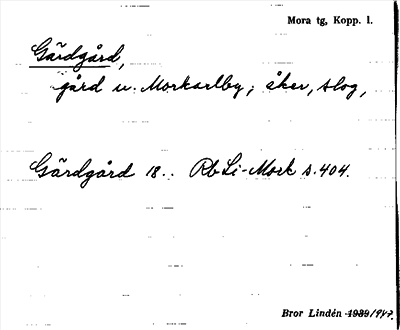 Mora tg, Kopp. l.
Gårdgård,
gård u. Morkarlby; åker, slog,
Gårdgård 18.. Rb Li-Mork s. 404.
Bror Lindén 1939/947.